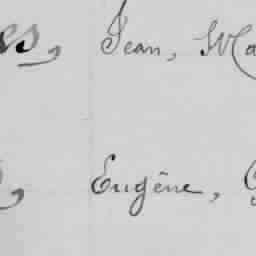 es, Jean, Ma
, Eugène,